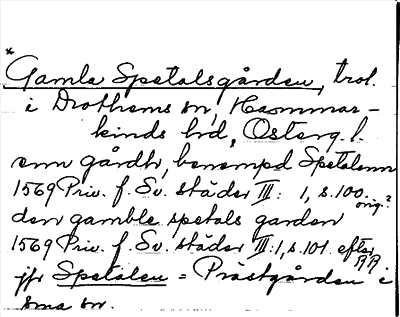 * Gamla Spetalsgården, trol.
i Drothems sn, Hammar-
kinds hd, Österg. l.
enn gårdh, benempd Spetalenn
1569 Priv. f. Sv. städer III: 1, s. 100.
den gamble spetals garden orig.?
1569 Priv. f. Sv. städer III: 1, s. 101. efter RA
jfr Spetalen = Prästgården i
sma sn.